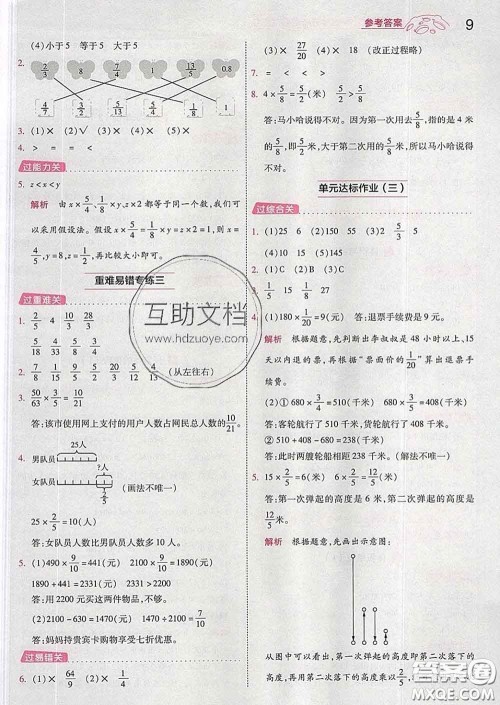 参考答案 9
(4)小于5 等于5 大于5
2. 2/3 5/8 1 13/5 0.8
1 1/4 3/2 8/5 5/13 5/4
3. (1)× (2)√ (3)×
4. > = = < <
过能力关
5. z<x<y
解析 由x×5/4、y×1/8、z×2都等于同一个数,我们可
以采用假设法。假设他们的结果都等于1,则x=
4/5,y=8,z=1/2,再比较大小即可。
重难易错专练三
过重难关
1. 2/5 4 10/3 28/3
2. 7/8 1/15 2/9 5/12 4/15 5/13 (从左往右)
3. 50/63×3/5=10/21
答:该市使用网上支付的用户人数占网民总人数的10/21。
4. 25人
男队员
?人
女队员 (画法不唯一)
2/5
25×2/5=10(人)
答:女队员人数比男队员人数多10人。
5. (1)490×9/10=441(元) 2100×9/10=1890(元)
1890+441=2331(元) 2331>2200
答:用2200元买这两件物品,不够。
(2)2100-630=1470(元) 1470÷2100=7/10
答:妈妈持贵宾卡购物享受七折优惠。
过易错关
6. (1)× 64/9 (2)× 1/4
(3)× 27/20 (4)× (改正过程略)
7. = < > <
8. 4×5/8=5/2(米) 5/2>5/8
答:马小哈说得不对。因为第一次用去5/8米,是指4米
中的5/8,即5/2米,大于第二次用的5/8米,所以马小哈说得
不对。
单元达标作业(三)
过综合关
1. (1)25 35 150 (2)< > > <
(4)10 15 (5)145
2. (1)C (2)B (3)C
3. 1/5 15 27/8 30
4. (1)180×1/20=9(元) 答:退票手续费是9元。
解析 根据题意,先判断出李叔叔是48小时以上,15
天以内退的票。再根据“票面价的1/20”算出退票手
续费。
(2)①680×3/4=510(千米) 680×3/5=408(千米)
答:客轮航行了510千米,货轮航行了408千米。
②510+408-680=238(千米)
答:此时两艘轮船相距238千米。(解法不唯一)
5. 15×2/5=6(米) 6×2/5=12/5(米)
答:第一次弹起的高度是6米,第二次弹起的高度是
12/5米。
解析 根据题意,先画出示意图:
从图中可以看到,第一次弹起的高度即第二次落下的
高度,再根据第二次落下的高度乘以2/5,
互助文档
www.hdzuoye.com
答案圈
MXQE.COM